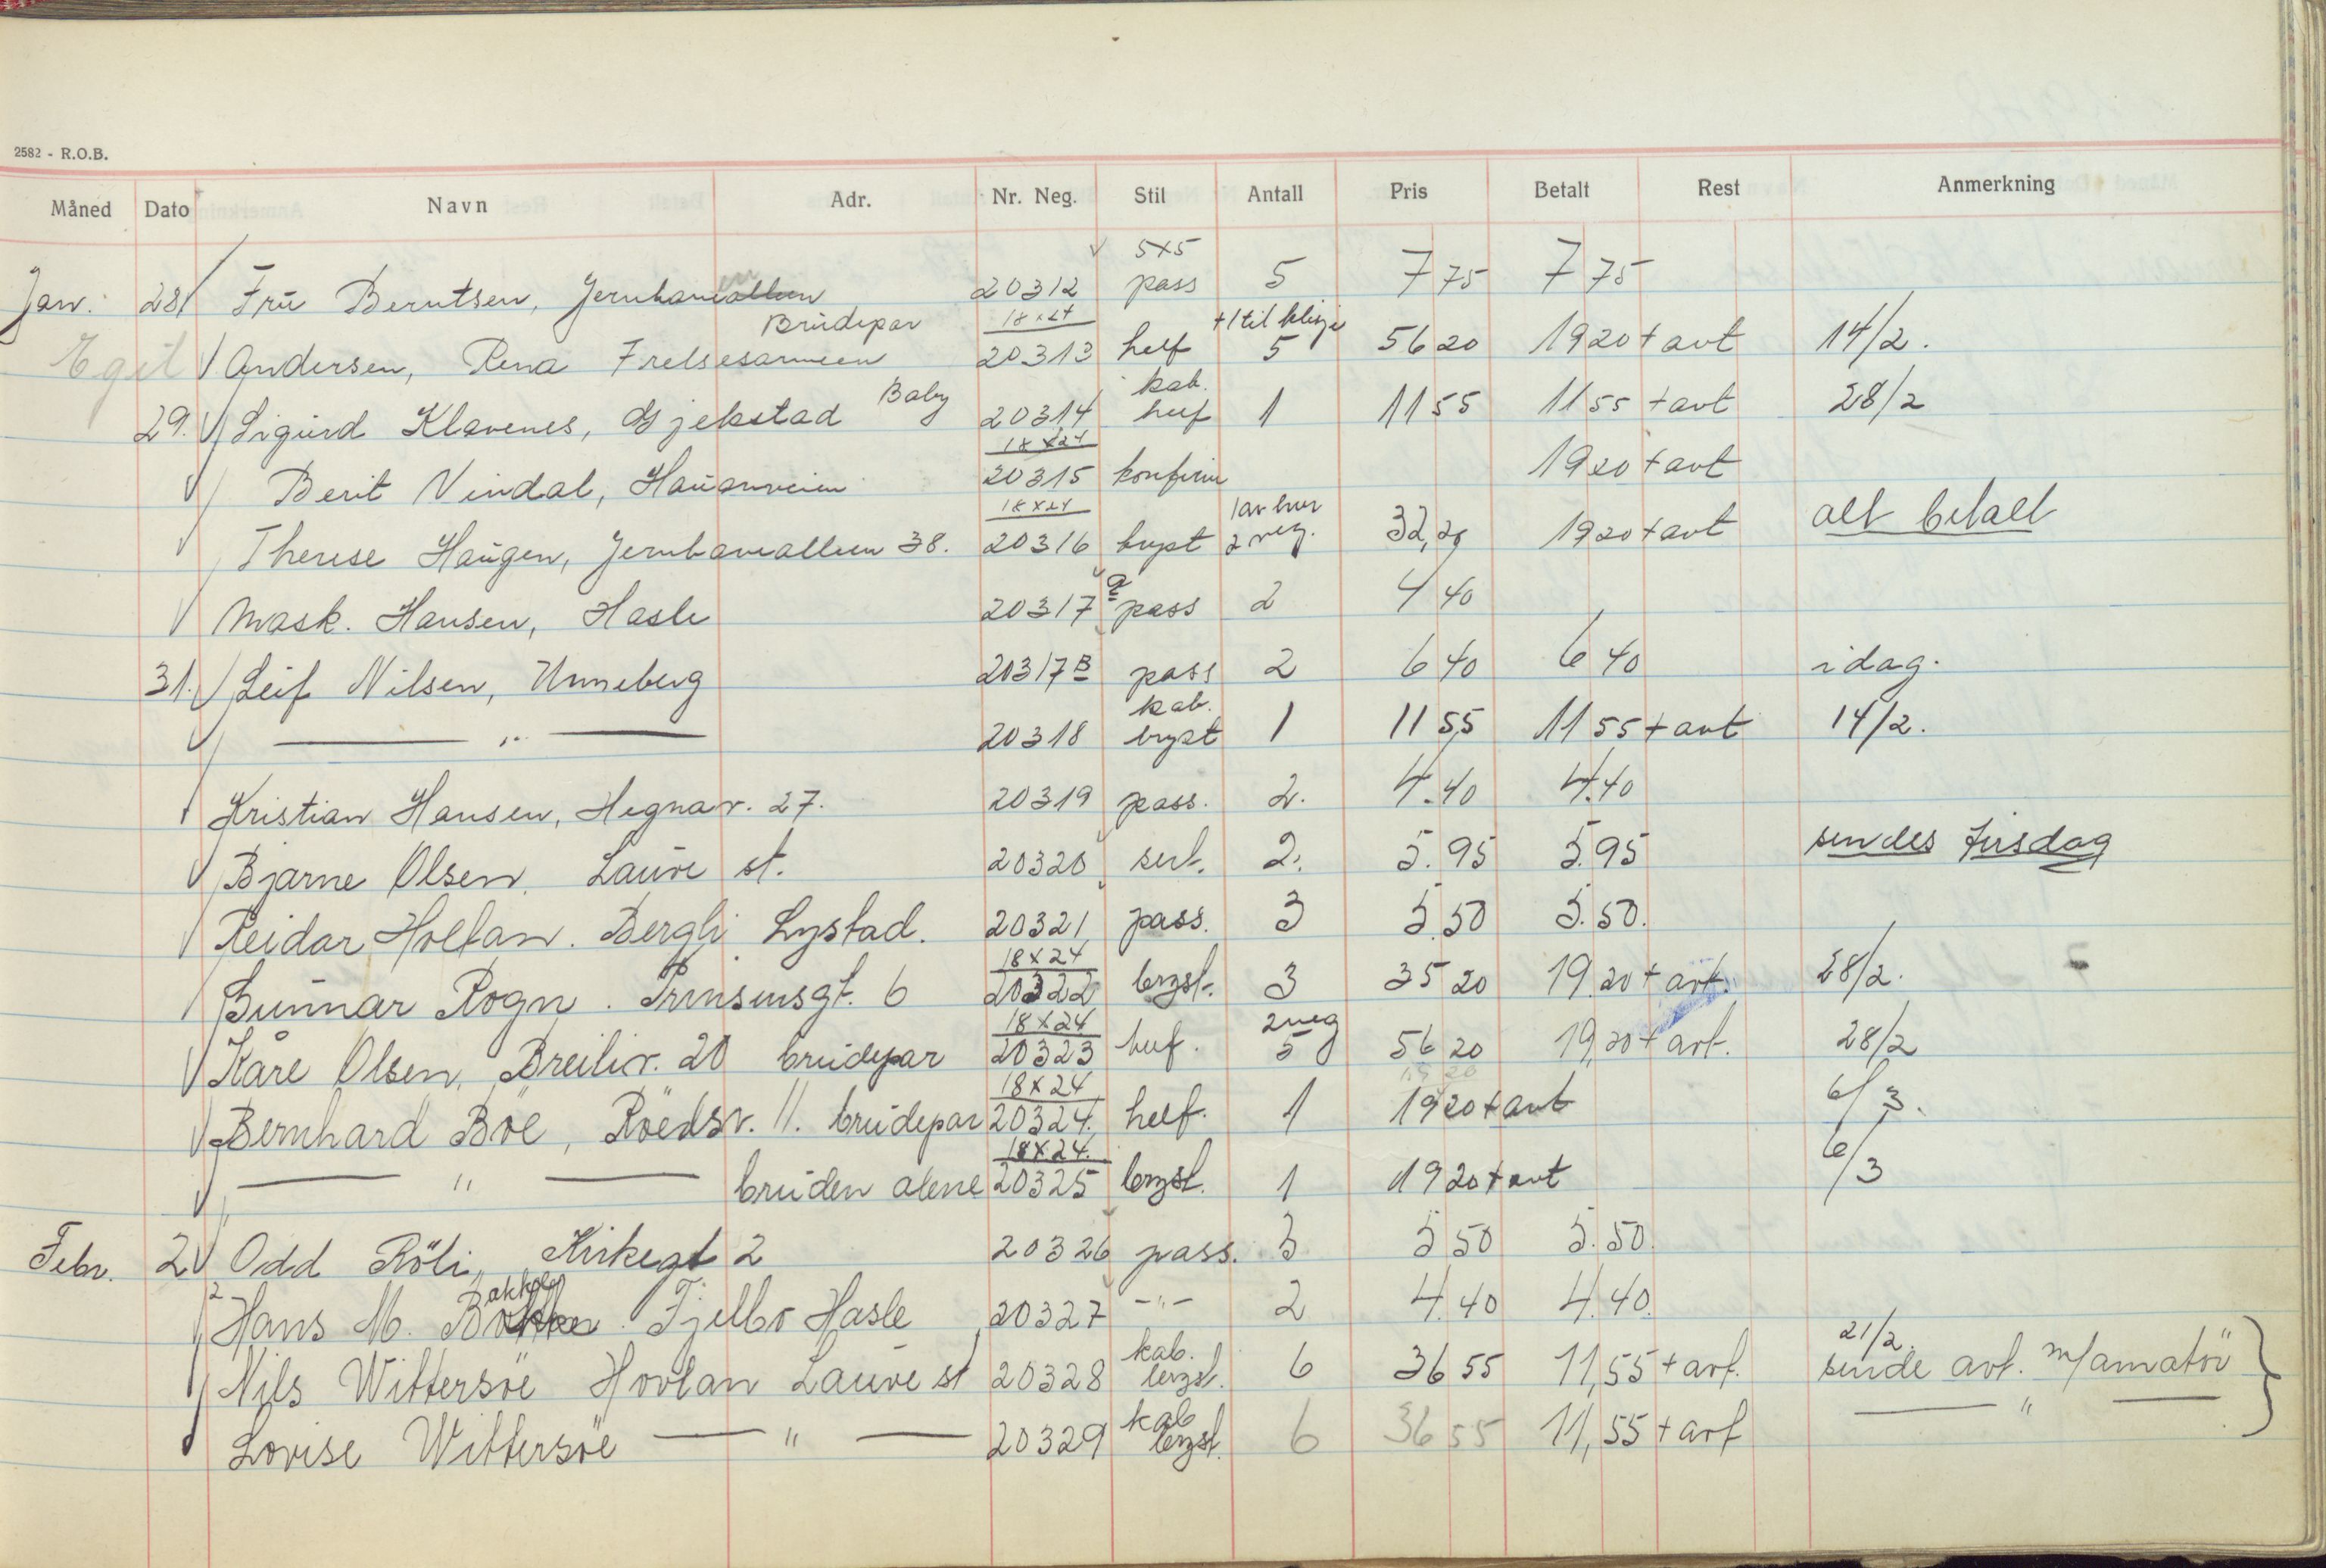 2582 - R.O.B.
Måned Dato Navn Adr. Nr. Neg. Stil Antall Pris Betalt Rest Anmerkning
5x5
Jan. 28 Frü Berntsen, Jernbanealleen 20312 pass 5 7 75 7 75
Brüdepar 18x24 +1 til
Egil Andersen, Rena Frelsesarmeen 20313 helf 5 56 20 19 20 + avt 14/2.
Baby kab.
29. Sigürd Klavenes, Gjekstad 20314 helf 1 11 55 11 55 + avt 28/2
18x24
Berit Vindal, Haüanveien 20315 konfirm 19 20 + avt
18x24 1 av hver
Therese Haügen, Jernbanealleen 38. 20316 bryst 2 neg. 32,20 19 20 + avt alt betalt
Mask. Hansen, Hasle 20317 a pass 2 4 40
31. Leif Nilsen, Unneberg 20317 B pass 2 6 40 6 40 idag.
kab.
— " — 20318 bryst 1 11 55 11 55 + avt 14/2.
Kristian Hansen, Hegnav. 27. 20319 pass. 2. 4.40 4.40
Bjarne Olsen, Laüve st. 20320 sert. 2. 5.95 5.95 sendes tirsdag
Reidar Holtan. Bergli Lystad. 20321 pass. 3 5.50 5.50.
18x24
Günnar Rogn. Prinsensgt. 6 20322 bryst. 3 35 20 19.20 + avt. 28/2.
18x24 2 neg
Kåre Olsen, Breiliv. 20 brüdepar 20323 helf. 5 56 20 19,20 + avt. 28/2
18x24
Bernhard Böe, Röedsv. 11. brüdepar 20324. helf. 1 19 20 + avt 6/3.
18x24.
— " — brüden alene 20325 bryst. 1 19 20 + avt 6/3
Febr. 2 Odd Röli, Kirkegt 2 20326 pass. 3 5 50 5.50.
2 Hans M. Fjellbo Hasle 20327 -"- 2 4.40 4.40.
kab. 21/2.
Nils Wittersöe Hovlan Laüve st 20328 bryst. 6 36 55 11,55 + avt. sende avt. m/amatör
kab
Lovise Wittersöe — " — 20329 bryst. 6 36 55 11,55 + avt — " —